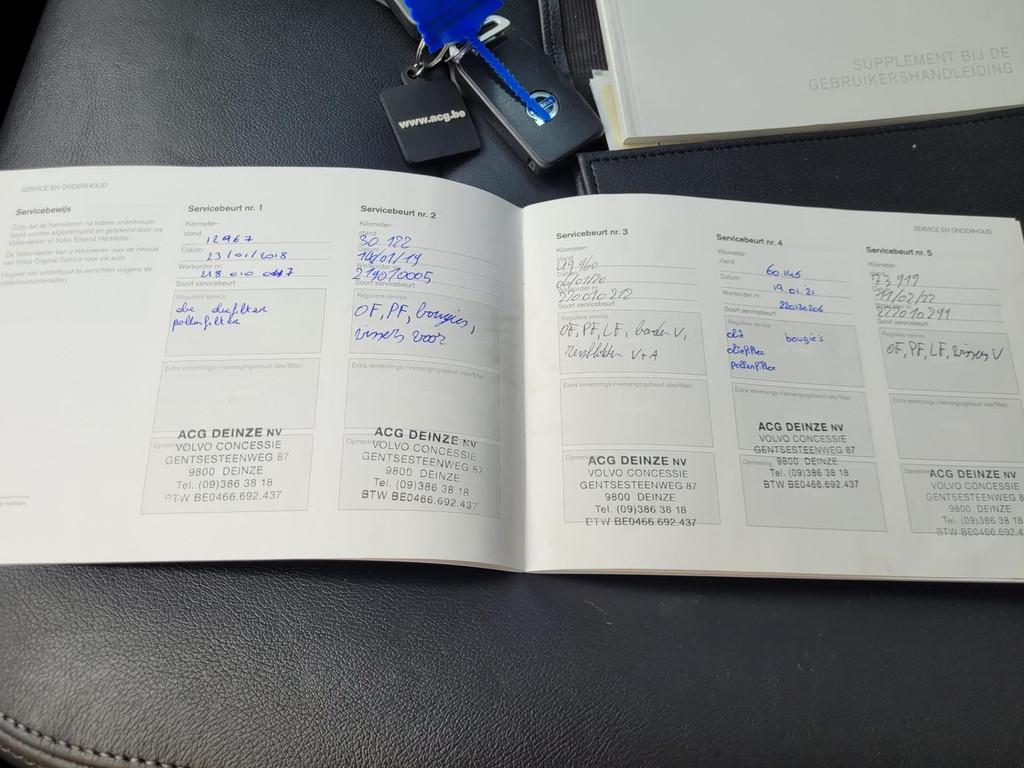 SUPPLEMENT BIJ DE
GEBRUIKERSHANDLEIDING
www.acg.be
SERVICE EN ONDERHOUD
Servicebewijs
Zorg dat de formulieren na iedere onderhouds-
beurt worden afgestempeld en getekend door uw
Volvo-dealer of Volvo Erkend Hersteller.
De Volvo-dealer kan u informeren over de inhoud
van Volvo Original Service voor uw auto.
Vergeet niet onderhoud te verrichten volgens de
onderhoudsintervallen.
Servicebeurt nr. 1
Kilometer-
stand
12967
Datum
23/01/2018
Werkorder nr.
218 010 047
Soort servicebeurt
Reguliere service
olie oliefilter
pollenfilter
Extra verversings-/vervangingsbeurt olie/filter:
Opmerking
ACG DEINZE NV
VOLVO CONCESSIE
GENTSESTEENWEG 87
9800 DEINZE
Tel. (09)386 38 18
BTW BE0466.692.437
Servicebeurt nr. 2
Kilometer-
stand
30.122
Datum
16/01/19
Werkorder nr.
219070005
Soort servicebeurt
Reguliere service
OF, PF, bougies,
wissers voor
Extra verversings-/vervangingsbeurt olie/filter:
Opmerking
ACG DEINZE NV
VOLVO CONCESSIE
GENTSESTEENWEG 87
9800 DEINZE
Tel. (09)386 38 18
BTW BE0466.692.437
Servicebeurt nr. 3
Kilometer-
stand
49 960
Datum
06/01/20
Werkorder nr.
220010212
Soort servicebeurt
Reguliere service
OF, PF, LF, banden V,
remblokken V+A
Extra verversings-/vervangingsbeurt olie/filter:
Opmerking
ACG DEINZE NV
VOLVO CONCESSIE
GENTSESTEENWEG 87
9800 DEINZE
Tel. (09)386 38 18
BTW BE0466.692.437
Servicebeurt nr. 4
Kilometer-
stand
60.145
Datum
19.01.21
Werkorder nr.
Soort servicebeurt
Reguliere service
olie bougies
oliefilter
pollenfilter
Extra verversings-/vervangingsbeurt olie/filter:
Opmerking
ACG DEINZE NV
VOLVO CONCESSIE
GENTSESTEENWEG 87
9800 DEINZE
Tel. (09)386 38 18
BTW BE0466.692.437
SERVICE EN ONDERHOUD
Servicebeurt nr. 5
Kilometer-
stand
73 919
Datum
11/02/22
Werkorder nr.
222010241
Soort servicebeurt
Reguliere service
OF, PF, LF, wissers V
Extra verversings-/vervangingsbeurt olie/filter:
Opmerking
ACG DEINZE NV
VOLVO CONCESSIE
GENTSESTEENWEG 8
9800 DEINZE
Tel. (09)386 38 1
BTW BE0466.692.4